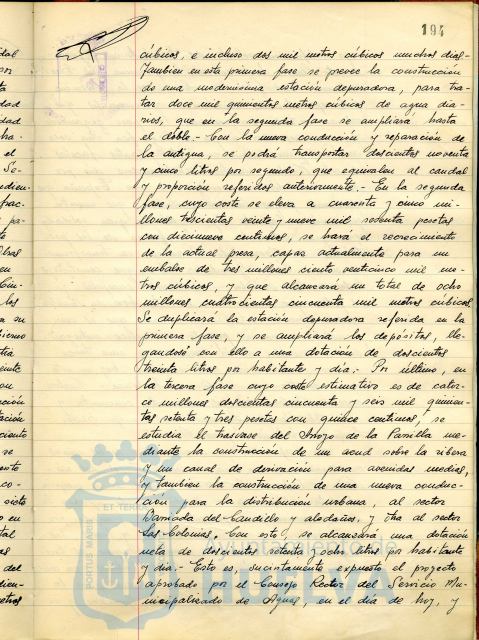 194
cúbicos, e incluso dos mil metros cúbicos muchos dias.-
Tambien en esta primera fase se prevee la construccion
de una modernísima estación depuradora, para tra-
tar doce mil quinientos metros cúbicos de agua dia-
rios, que en la segunda fase se ampliará hasta
el doble.- Con la nueva conducción y reparación de
la antigua, se podrá transportar doscientos noventa
y cinco litros por segundo, que equivalen al caudal
y proporción referidos anteriormente.- En la segunda
fase, cuyo coste se eleva a cuarenta y cinco mi-
llones trescientas veinte y nueve mil sesenta pesetas
con diecinueve centimos, se hará el recrecimiento
de la actual presa, capaz actualmente para un
embalse de tres millones ciento venticinco mil me-
tros cúbicos, y que alcanzará un total de ocho
millones cuatrocientas cincuenta mil metros cúbicos
Se duplicará la estación depuradora referida en la
primera fase, y se ampliará los depósitos, lle-
gandose con ello a una dotación de doscientos
treinta litros por habitante y dia.- Por último, en
la tercera fase cuyo coste estimativo es de cator-
ce millones doscientas cincuenta y seis mil quinien-
tas setenta y tres pesetas con quince centimos, se
estudia el trasvase del Arroyo de la Parrilla me-
diante la construcción de un azud sobre la ribera
y un canal de derivación para avenidas medias,
y tambien la construcción de una nueva conduc-
ción para la distribución urbana, al sector
Barriada del Caudillo y aledaños, y otra al sector
Las Colonias. Con esto, se alcanzará una dotación
neta de doscientos setenta y ocho litros por habitante
y dia.- Esto es, sucintamente expuesto el proyecto
aprobado por el Consejo Rector del Servicio Mu-
nicipalizado de Aguas, en el dia de hoy, y
PORTUS MARIS
ET TERRAE
Ayuntamiento de
HUELVA